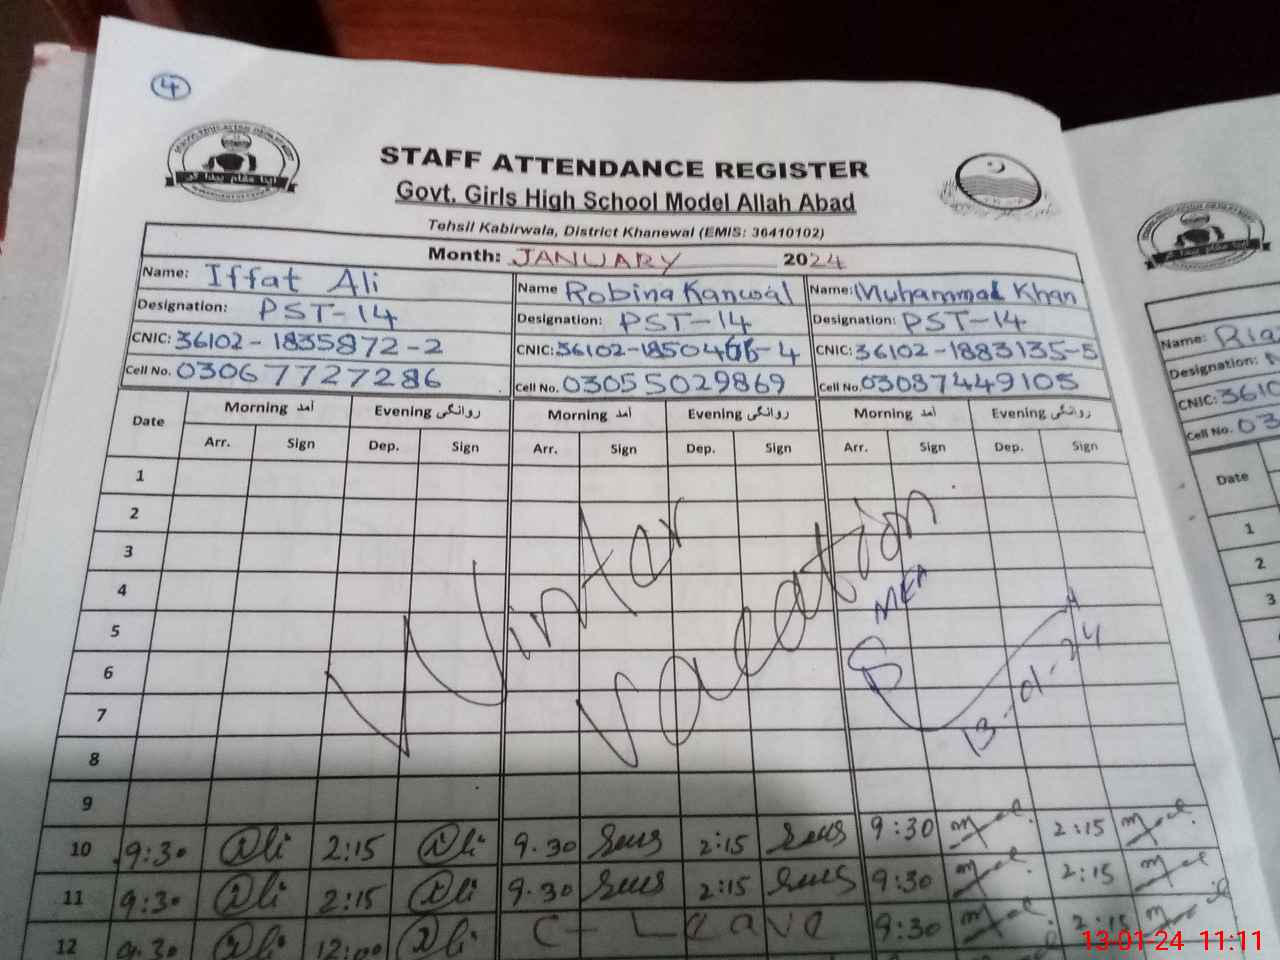 4
STAFF ATTENDANCE REGISTER
Govt. Girls High School Model Allah Abad
Tehsil Kabirwala, District Khanewal (EMIS: 36410102)
Month: JANUARY 2024
Name: Iffat Ali Name Robina Kanwal Name: Muhammad Khan
Designation: PST-14 Designation: PST-14 Designation: PST-14
CNIC: 36102-1835872-2 CNIC: 36102-1850466-4 CNIC: 36102-1883135-5
Cell No. 03067727286 Cell No. 03055029869 Cell No. 03087449105
Date Morning آمد Evening روانگی Morning آمد Evening روانگی Morning آمد Evening روانگی
Arr. Sign Dep. Sign Arr. Sign Dep. Sign Arr. Sign Dep. Sign
1
2
3
4
5
6
7
8
9
Winter
Vacation
MEA
13-01-24
10 9:30 Ali 2:15 Ali 9.30 2:15 9:30 2:15
11 9:30 Ali 2:15 Ali 9.30 2:15 9:30 2:15
12 9:30 Ali 12:00 Ali C-Leave 9:30 2:15
Name: Ria
Designation:
CNIC: 3610
Cell No. 03
Date
1
2
3
13-01-24 11:11